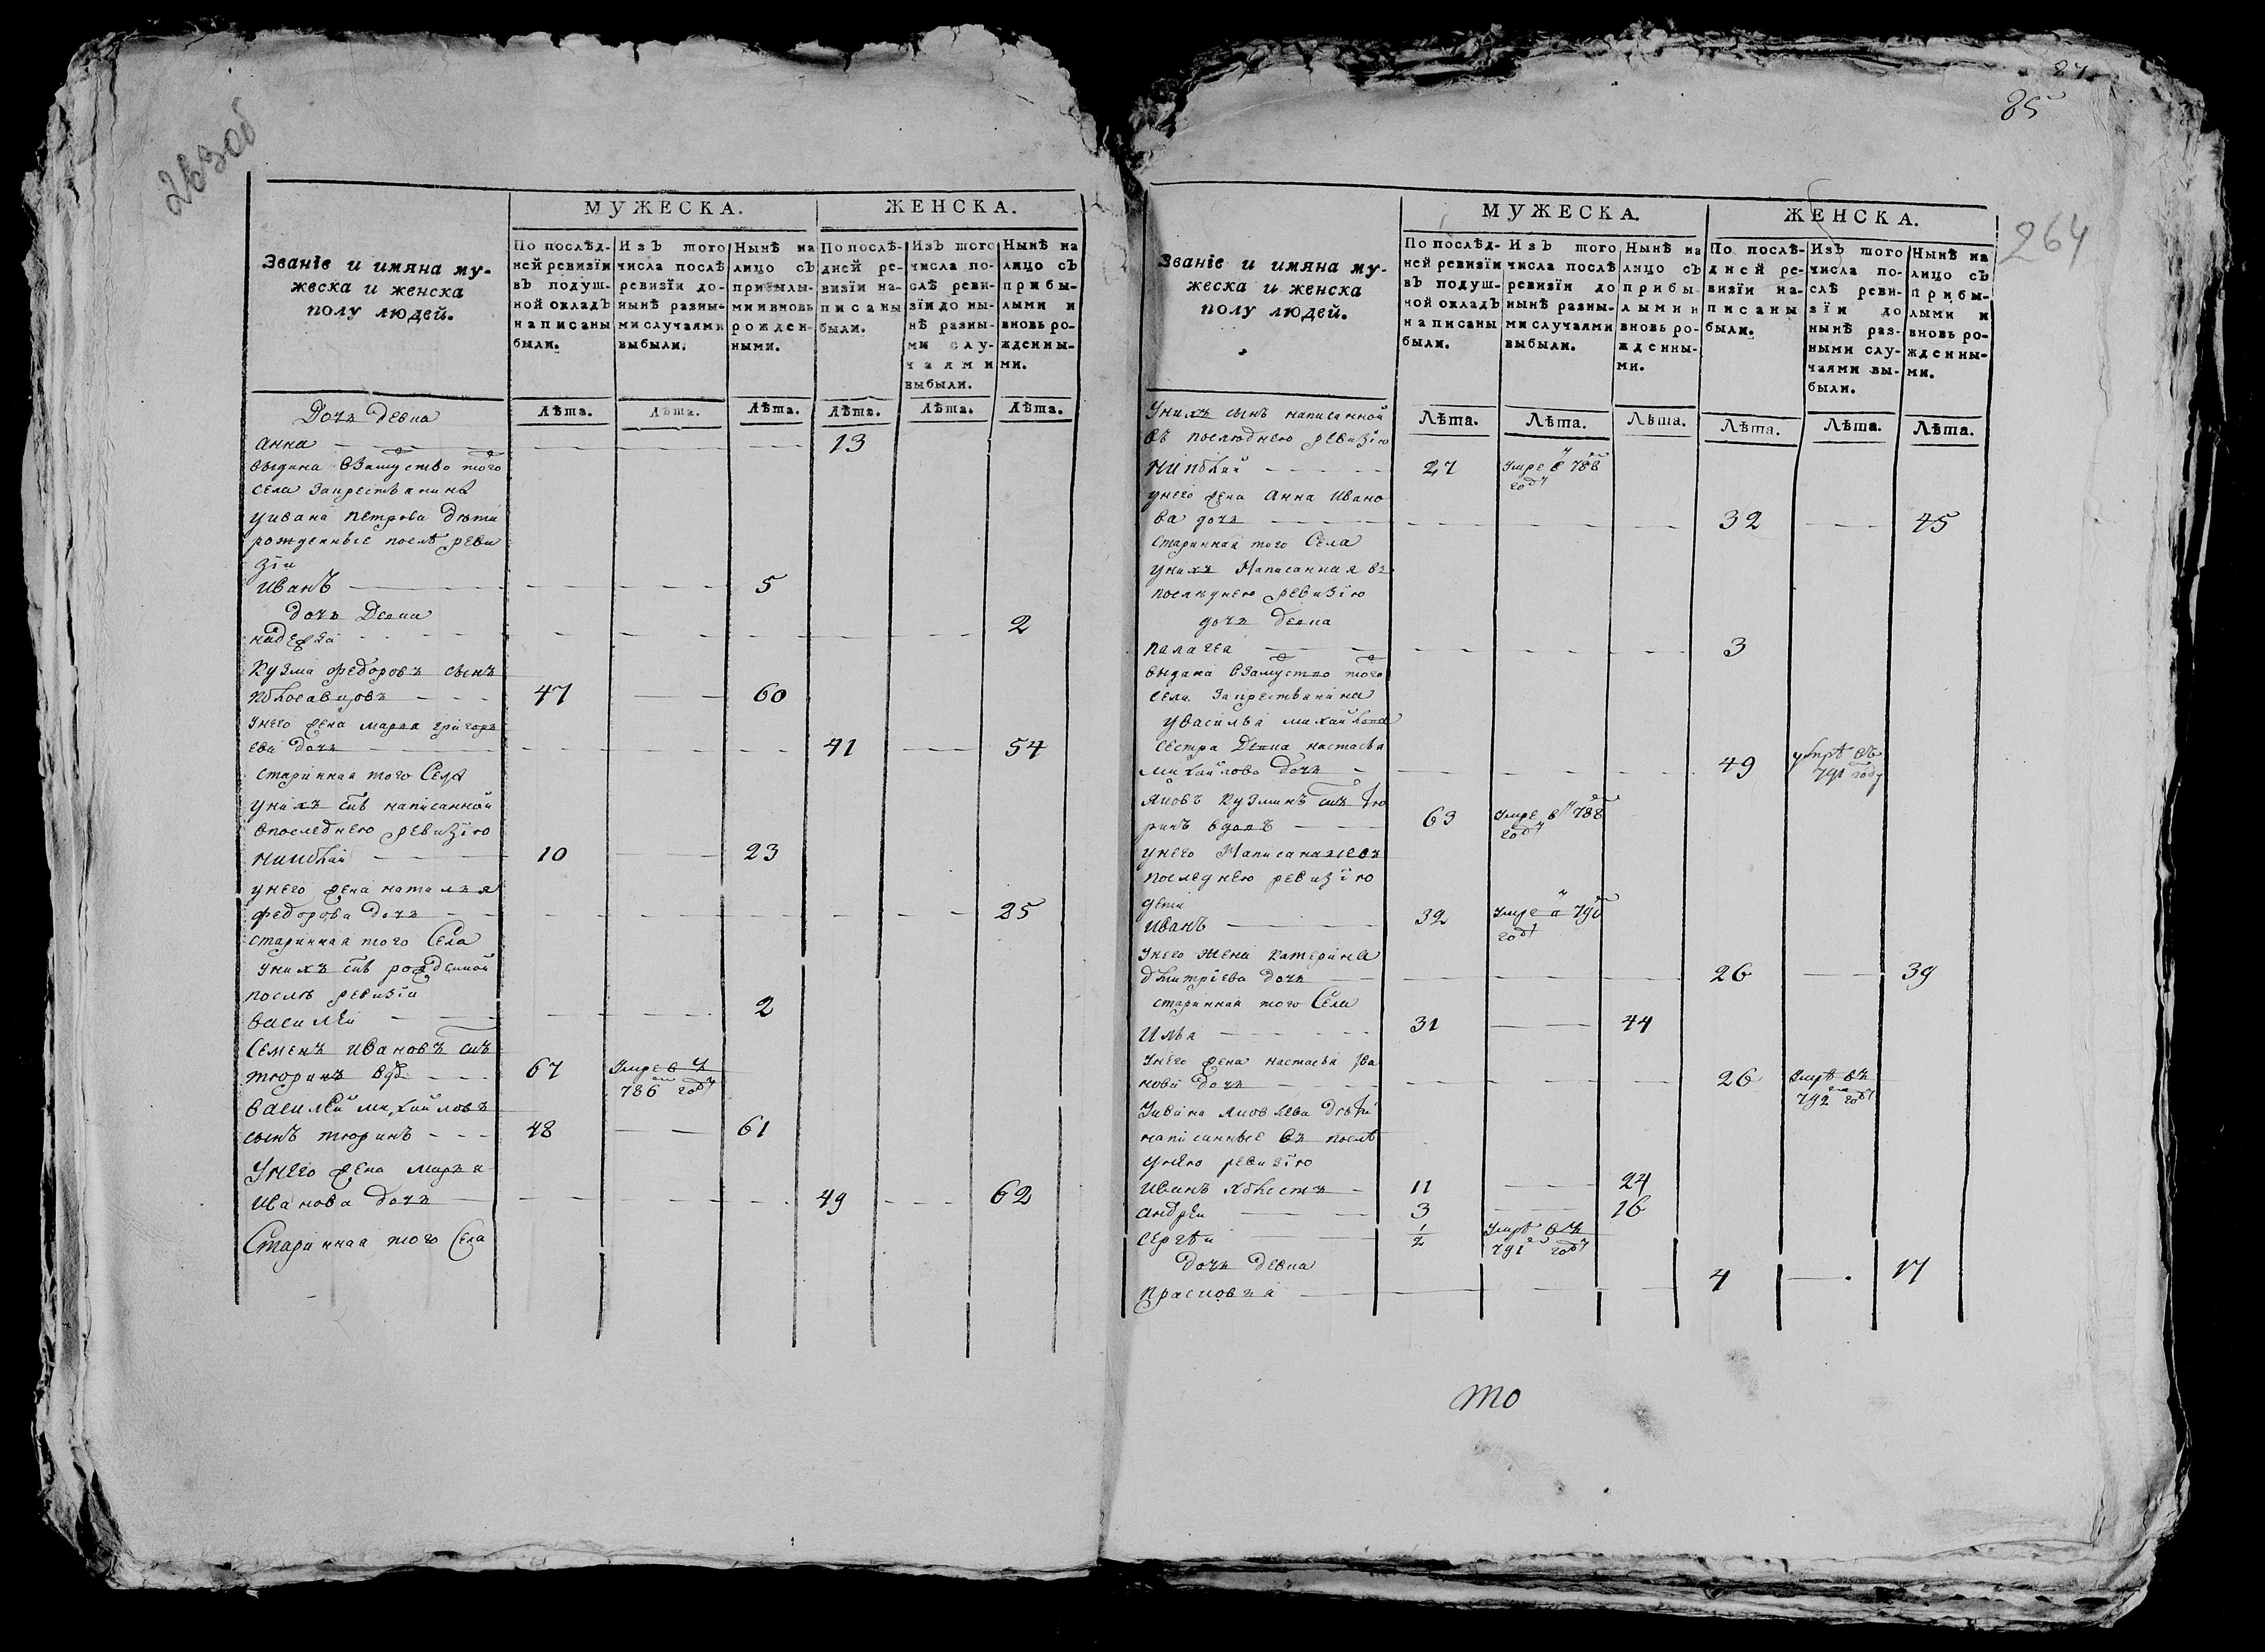 263об
МУЖЕСКА.
ЖЕНСКА.
Званіе и имяна му-
жеска и женска
полу людей.
По послѣд-
ней ревизїи
въ подуш-
ной окладъ
написаны
были.
Изъ того
числа послѣ
ревизїи до-
нынѣ разны-
ми случаями
выбыли.
Нынѣ на
лицо съ
прибылы-
ми и вновь
рожден-
ными.
По послѣ-
дней ре-
визїи на-
писаны
были.
Изъ того
числа по-
слѣ реви-
зїи до ны-
нѣ разны-
ми слу-
чаями
выбыли.
Нынѣ на
лицо съ
прибы-
лыми и
вновь ро-
жденны-
ми.
Лѣта. Лѣта. Лѣта. Лѣта. Лѣта. Лѣта.
Дочь девка
анна 13
выдана взамуство того
села закрестьянина
уивана петрова дѣти
рожденные послѣ реви
зїи
иванъ 5
дочь Девка
надежда 2
кузма федоровъ сынъ
47 60
унего жена марья григорь
ева дочь 41 54
старинная того Села
унихъ снъ написанной
впоследнею ревизїю
николай 10 23
унего жена наталья
федорова дочь 25
старинная того Села
унихъ снъ рожденной
послѣ ревизїи
василей 2
Семенъ ивановъ снъ
тюринъ вдвъ 67 Умре въ
786 году
василей михайловъ
сынъ тюринъ 48 61
Унего жена марья
иванова дочь 49 62
Старинная того Села
84
85
264
МУЖЕСКА.
ЖЕНСКА.
Званіе и имяна му-
жеска и женска
полу людей.
По послѣд-
ней ревизїи
въ подуш-
ной окладъ
написаны
были.
Изъ того
числа послѣ
ревизїи до
нынѣ разны-
ми случаями
выбыли.
Нынѣ на
лицо съ
прибы
лыми и
вновь ро-
жденны-
ми.
По послѣ-
дней ре-
визїи на-
писаны
были.
Изъ того
числа по-
слѣ реви-
зїи до
нынѣ раз-
ными слу-
чаями вы-
были.
Нынѣ на
лицо съ
прибы-
лыми и
вновь ро-
жденны-
ми.
Лѣта. Лѣта. Лѣта. Лѣта. Лѣта. Лѣта.
Унихъ сынъ написанной
въ последнею ревизїю
николай 27 Умре в 788
году
унего жена анна ивано
ва дочь 32 45
Стариннай того Села
унихъ Написанная въ
последнею ревизїю
дочь девка
палагеа 3
выдана взамуство того
села закрестьянина
увасилья михайлова
сестра Девка настасья
михайлова дочь 49 умрѣ въ
791 году
яковъ кузминъ снъ тю
ринъ вдовъ 63 Умре в 788
году
унего Написаные въ
последнею ревизїю
дети
иванъ 32 Умре в 790
году
Унего жена катерина
дмитрїева дочь 26 39
стариннаа того Села
илья 31 44
Унего жена настасья ива
нова дочь 26 Умрѣ въ
792 году
Уивана яковлева дѣти
написанные въ послѣ
днею ревизїю
иванъ 11 24
андреи 3 16
сергѣи 1/2 Умрѣ въ
791 году
дочь девка
прасковья 4 17
то